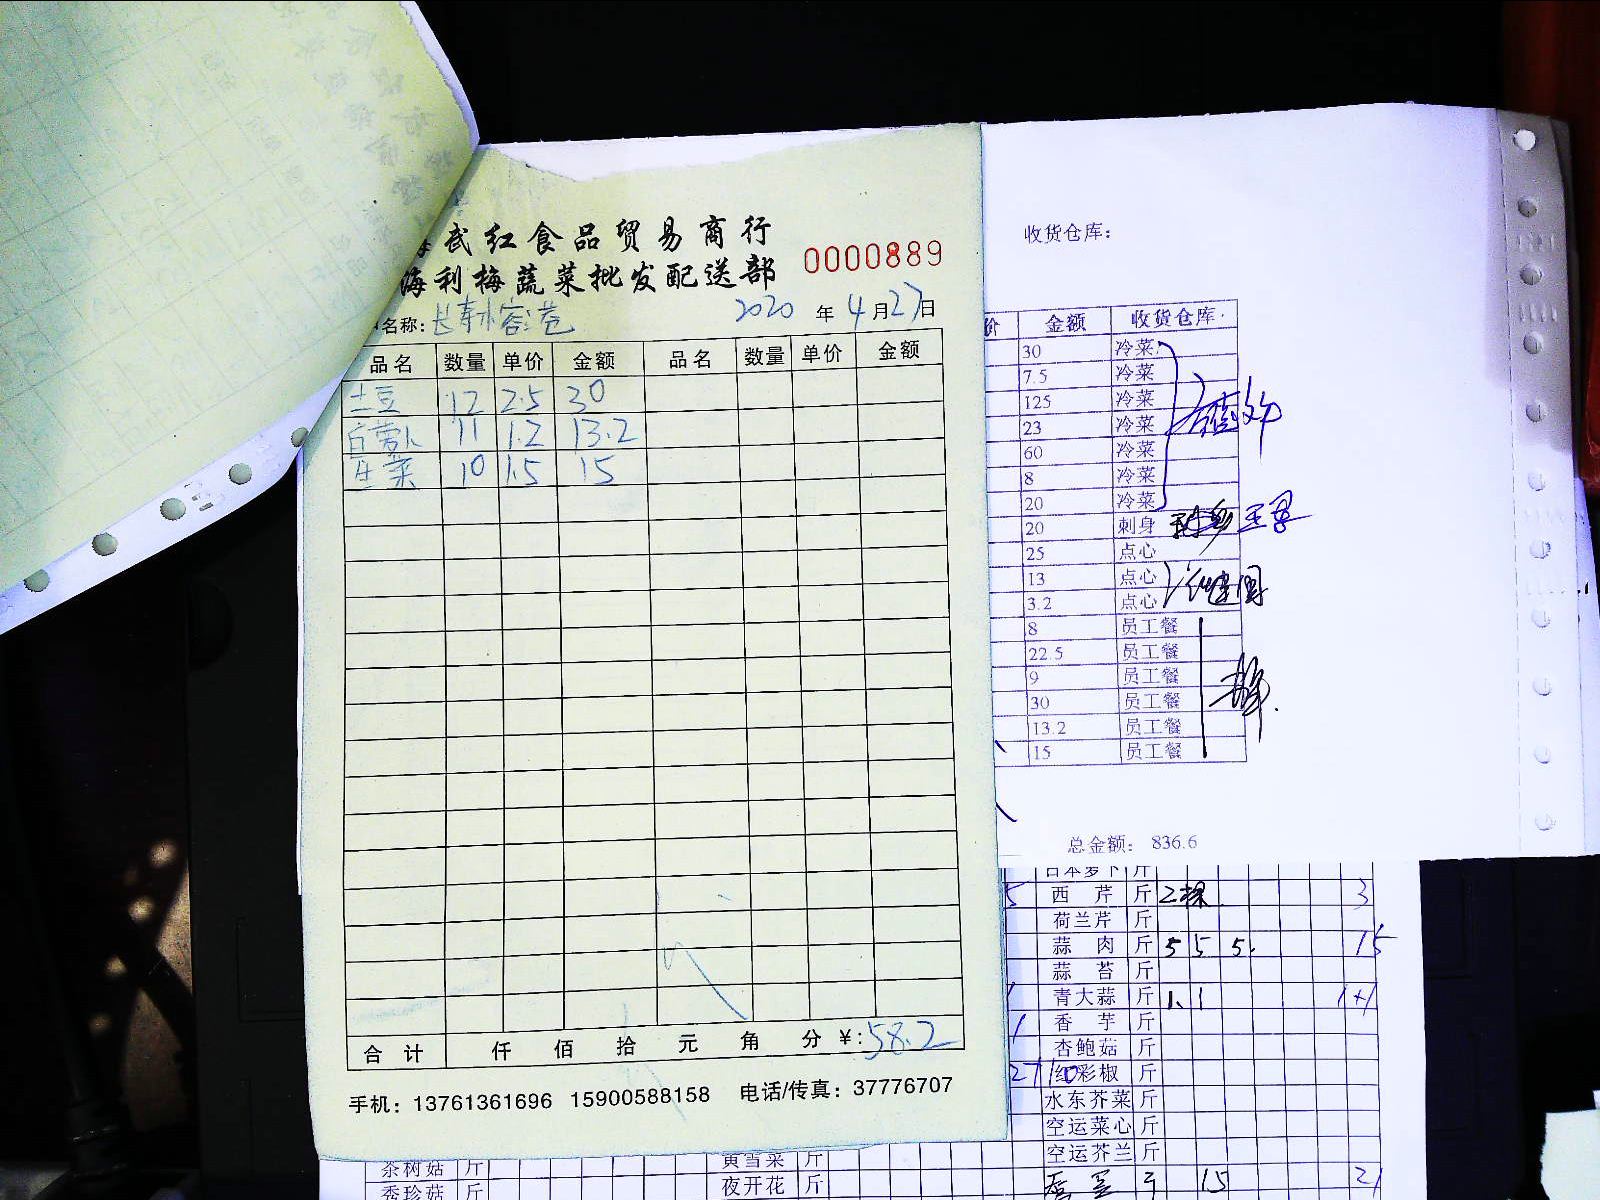 武红食品贸易商行
海利梅蔬菜批发配送部
0000889
名称：长寿 2020年4月27日
品名 数量 单价 金额 品名 数量 单价 金额
土豆 12 2.5 30
白萝卜 11 1.2 13.2
生菜 10 1.5 15
合计 仟 佰 拾 元 角 分 ¥：58.2
手机：13761361696 15900588158 电话/传真：37776707
收货仓库：
价 金额 收货仓库
30 冷菜
7.5 冷菜
125 冷菜
23 冷菜
60 冷菜
8 冷菜
20 冷菜
20 刺身
25 点心
13 点心
3.2 点心
8 员工餐
22.5 员工餐
9 员工餐
30 员工餐
13.2 员工餐
15 员工餐
总金额： 836.6
日本萝卜 斤
5 西芹 斤 2棵 3
荷兰芹 斤
蒜肉 斤 5 5 5. 15
蒜苔 斤
青大蒜 斤 1. 1 1+1
1 香芋 斤
杏鲍菇 斤
红彩椒 斤
水东芥菜 斤
空运菜心 斤
空运芥兰 斤
15 21
茶树菇 斤 黄雪菜 斤
秀珍菇 斤 夜开花 斤